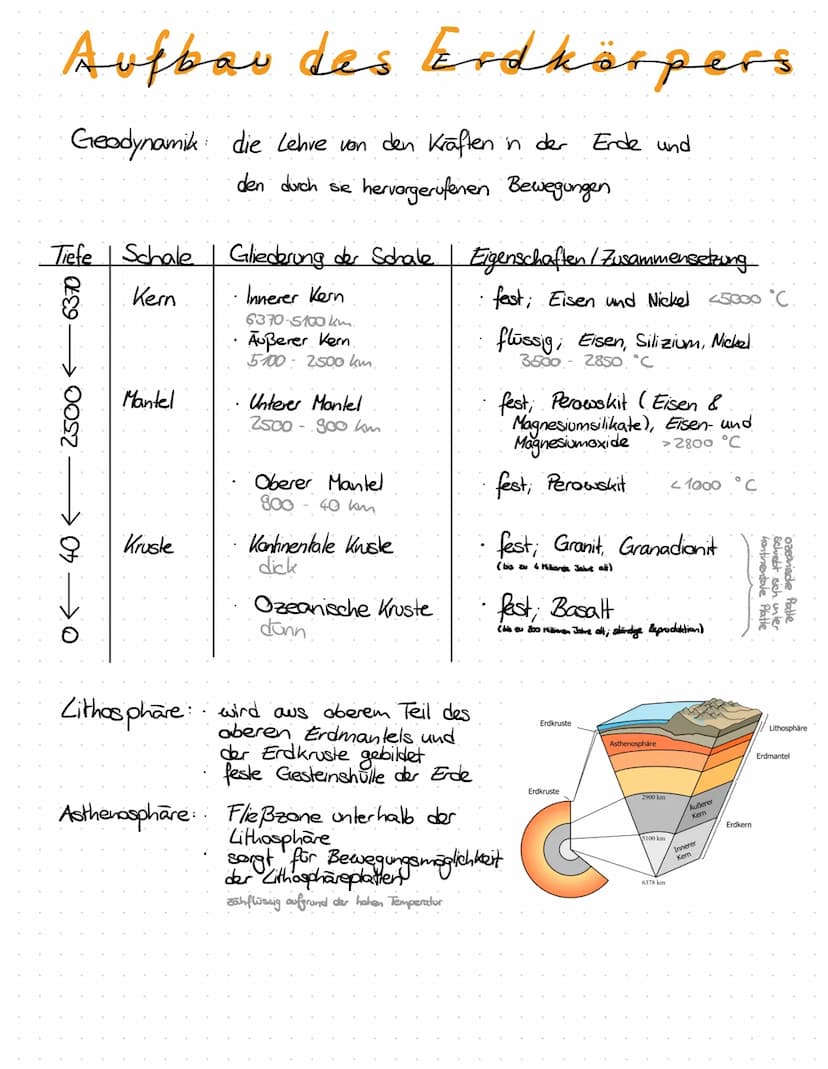 Aufbau des Erdkörpers
Geodynamik: die Lehre von den Kräften in der Erde und
den durch sie hervorgerufenen Bewegungen
Tiefe Schale Gliederung der Schale Eigenschaften / Zusammensetzung
0 ← 40 ← 2500 ← 6370
Kern · Innerer Kern · fest; Eisen und Nickel <5000 °C
6370-5100 km
· Äußerer Kern flüssig; Eisen, Silizium, Nickel
5100 - 2500 km 3500 - 2850 °C
Mantel · Unterer Mantel · fest; Perowskit (Eisen &
2500 - 900 km Magnesiumsilikate), Eisen- und
Magnesiumoxide >2800 °C
· Oberer Mantel · fest; Perowskit <1000 °C
900 - 40 km
Kruste · Kontinentale Kruste · fest; Granit, Granadionit
dick (bis zu 4 Milliarden Jahre alt)
· Ozeanische Kruste · fest; Basalt
dünn (bis zu 200 Millionen Jahre alt; ständige Reproduktion)
ozeanische Platte
schiebt sich unter
kontinentale Platte
Lithosphäre: · wird aus oberem Teil des
oberen Erdmantels und
der Erdkruste gebildet
· feste Gesteinshülle der Erde
Asthenosphäre: · Fließzone unterhalb der
Lithosphäre
· sorgt für Bewegungsmöglichkeit
der Lithosphäreplatten
zähflüssig aufgrund der hohen Temperatur
Erdkruste
Lithosphäre
Asthenosphäre
Erdmantel
Erdkruste
2900 km
Äußerer
Kern
Erdkern
5100 km
Innerer
Kern
6378 km